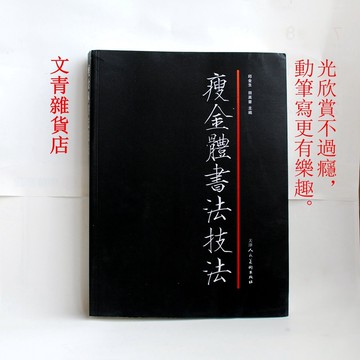 光欣賞不過癮，
動筆寫更有樂趣。
瘦金體書法技法
文青雜貨店